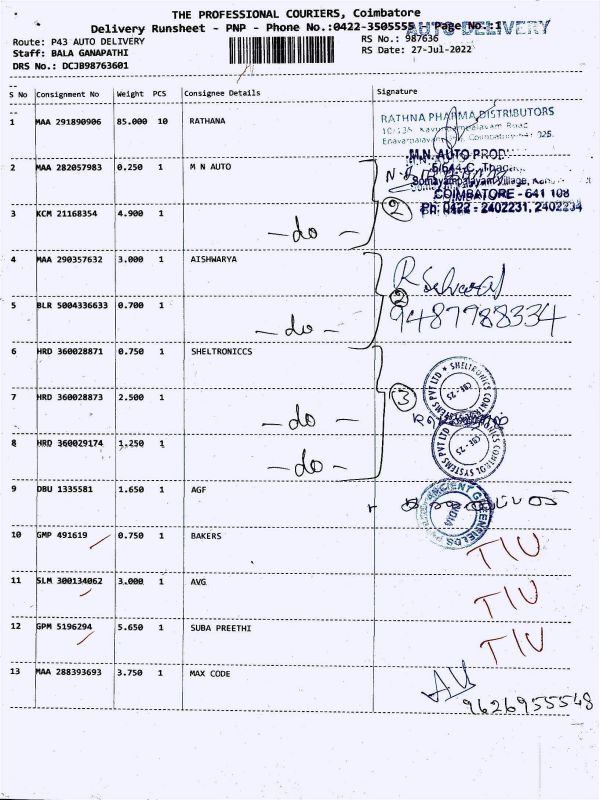 THE PROFESSIONAL COURIERS, Coimbatore
Delivery Runsheet - PNP - Phone No.:0422-3505555 Page No.:1
AUTO DELIVERY
Route: P43 AUTO DELIVERY
RS No.: 987636
Staff: BALA GANAPATHI
RS Date: 27-Jul-2022
DRS No.: DCJB98763601
S No Consignment No Weight PCS Consignee Details Signature
1 MAA 291890906 85.000 10 RATHANA
RATHNA PHARMA DISTRIBUTORS
2 MAA 282057983 0.250 1 M N AUTO
M.N. AUTO PROD
Somayampalayam Village,
COIMBATORE - 641 108
Ph: 0422 - 2402231, 2402234
2
3 KCM 21168354 4.900 1
- do -
4 MAA 290357632 3.000 1 AISHWARYA
2
5 BLR 5004336633 0.700 1
- do -
9487988334
6 HRD 360028871 0.750 1 SHELTRONICCS
SHELTRONICS CONTROL SYSTEMS PVT LTD
CBE-25
7 HRD 360028873 2.500 1
- do -
3
8 HRD 360029174 1.250 1
- do -
CONTROL SYSTEMS PVT LTD
CBE-25
9 DBU 1335581 1.650 1 AGF
ANCIENT GREENFIELDS
INDIA
10 GMP 491619 0.750 1 BAKERS
TIU
11 SLM 300134062 3.000 1 AVG
TIU
12 GPM 5196294 5.650 1 SUBA PREETHI
TIU
13 MAA 288393693 3.750 1 MAX CODE
9626955548